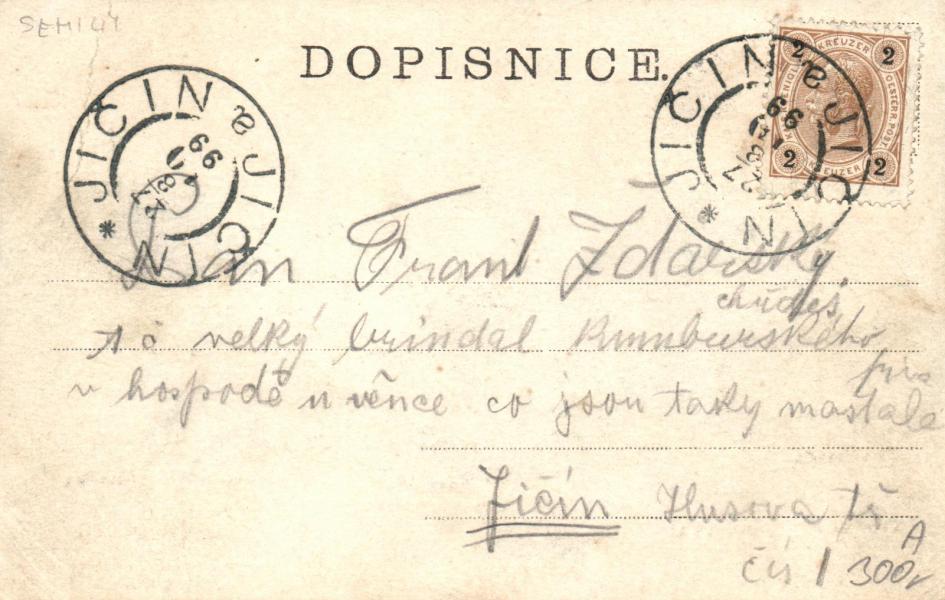 SEMILY
DOPISNICE.
JIČÍN JIČÍN
27/8 99
JIČÍN JIČÍN
27/8 99
2 KREUZER 2
2 KREUZER 2
Pan Frant Žďárský
chuděs
velký brindal Rumburského
v hospodě u věnce co jsou taky mastale
Jičín Husova tř
čís 1
A
300,-